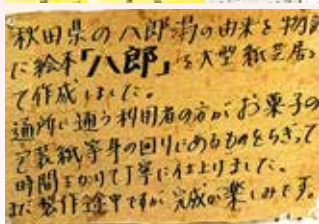 秋田県の八郎潟の由来を物語
に絵本「八郎」を大型紙芝居と
て作成しました。
通所に通う利用者の方がお菓子の
包装紙等身の回りにあるものをちぎって
時間をかけて丁寧に仕上りました。
まだ製作途中ですが完成が楽しみです。